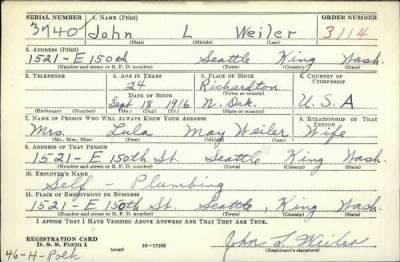 SERIAL NUMBER 1. NAME (Print) ORDER NUMBER
3740 John L Weiler 3114
(First) (Middle) (Last)
2. ADDRESS (Print)
1521 - E 150th Seattle King Wash.
(Number and street or R. F. D. number) (Town) (County) (State)
3. TELEPHONE 4. AGE IN YEARS 5. PLACE OF BIRTH 6. COUNTRY OF CITIZENSHIP
24 Richardton
DATE OF BIRTH (Town or county)
Sept 18 1916 N. Dak. U. S. A
(Exchange) (Number) (Mo.) (Day) (Yr.) (State or country)
7. NAME OF PERSON WHO WILL ALWAYS KNOW YOUR ADDRESS 8. RELATIONSHIP OF THAT PERSON
Mrs. Lula May Weiler Wife
(Mr., Mrs., Miss) (First) (Middle) (Last)
9. ADDRESS OF THAT PERSON
1521 - E 150th St. Seattle King Wash.
(Number and street or R. F. D. number) (Town) (County) (State)
10. EMPLOYER'S NAME
Self - Plumbing
11. PLACE OF EMPLOYMENT OR BUSINESS
1521 - E 150th St. Seattle, King Wash.
(Number and street or R. F. D. number) (Town) (County) (State)
I AFFIRM THAT I HAVE VERIFIED ABOVE ANSWERS AND THAT THEY ARE TRUE.
REGISTRATION CARD
D. S. S. Form 1 (over) 16-17105 John L. Weiler
(Registrant's signature)
46-H-Polk